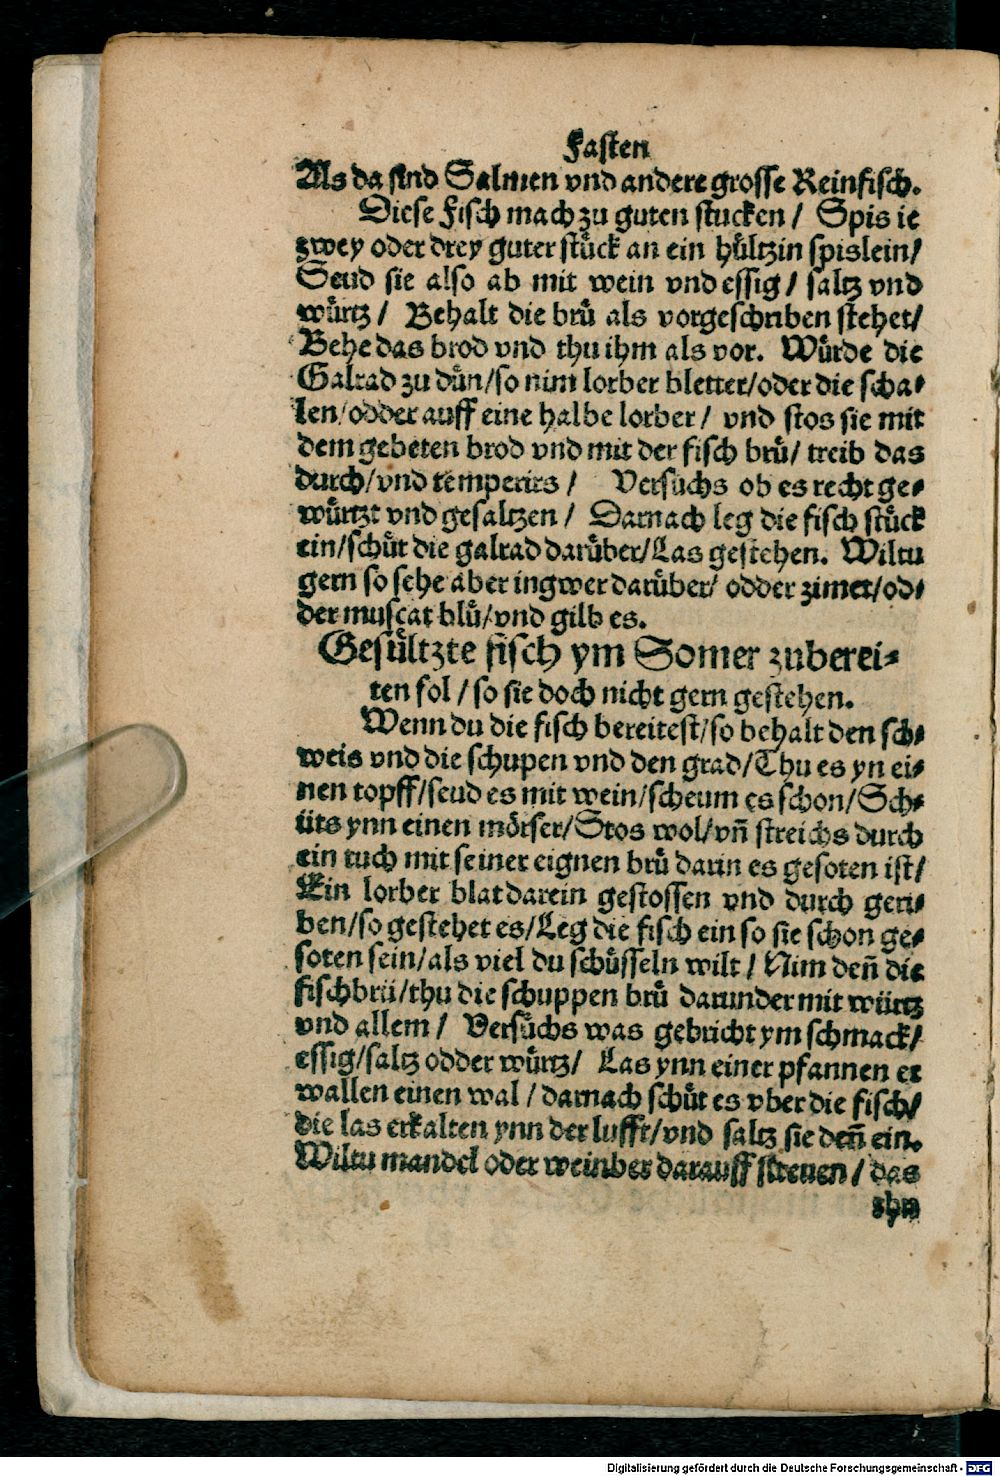 Fasten
Als da sind Salmen vnd andere grosse Reinfisch.
Diese fisch mach zu guten stucken / Spis ie
zwey oder drey guter stuͤck an ein huͤltzin spislein/
Seud sie also ab mit wein vnd essig / saltz vnd
wuͤrtz / Behalt die bruͤ als vorgeschriben stehet/
Behe das brod vnd thu ihm als vor. Wuͤrde die
Galrad zu duͤn/so nim lorber bletter/oder die scha⸗
len/odder auff eine halbe lorber / vnd stos sie mit
dem gebeten brod vnd mit der fisch bruͤ/ treib das
durch/vnd temperirs / Versuchs ob es recht ge⸗
wuͤrtzt vnd gesaltzen / Darnach leg die fisch stuͤck
ein/schuͤt die galrad daruͤber/Las gestehen. Wiltu
gern so sehe aber ingwer daruͤber/ odder zimet/od⸗
der muscat bluͤ/vnd gilb es.
Gesuͤltzte fisch ym Somer zuberei⸗
ten sol / so sie doch nicht gern gestehen.
Wenn du die fisch bereitest/so behalt den sch⸗
weis vnd die schupen vnd den grad/Thu es yn ei⸗
nen topff/seud es mit wein/scheum es schon/Sch⸗
uͤts ynn einen moͤrser/Stos wol/vn̄ streichs durch
ein tuch mit seiner eignen bruͤ darin es gesoten ist/
Ein lorber blat darein gestossen vnd durch geri⸗
ben/so gestehet es/Leg die fisch ein so sie schon ge⸗
soten sein/als viel du schuͤsseln wilt / Nim den̄ die
fischbruͤ/thu die schuppen bruͤ darunder mit wuͤrtz
vnd allem / Versuͤchs was gebricht ym schmack/
essig/saltz odder wuͤrtz/ Las ynn einer pfannen er
wallen einen wal / darnach schuͤt es vber die fisch/
die las erkalten ynn der lufft/vnd saltz sie den̄ ein.
Wiltu mandel oder weinber darauff strewen / das
thu
Digitalisierung gefördert durch die Deutsche Forschungsgemeinschaft - DFG